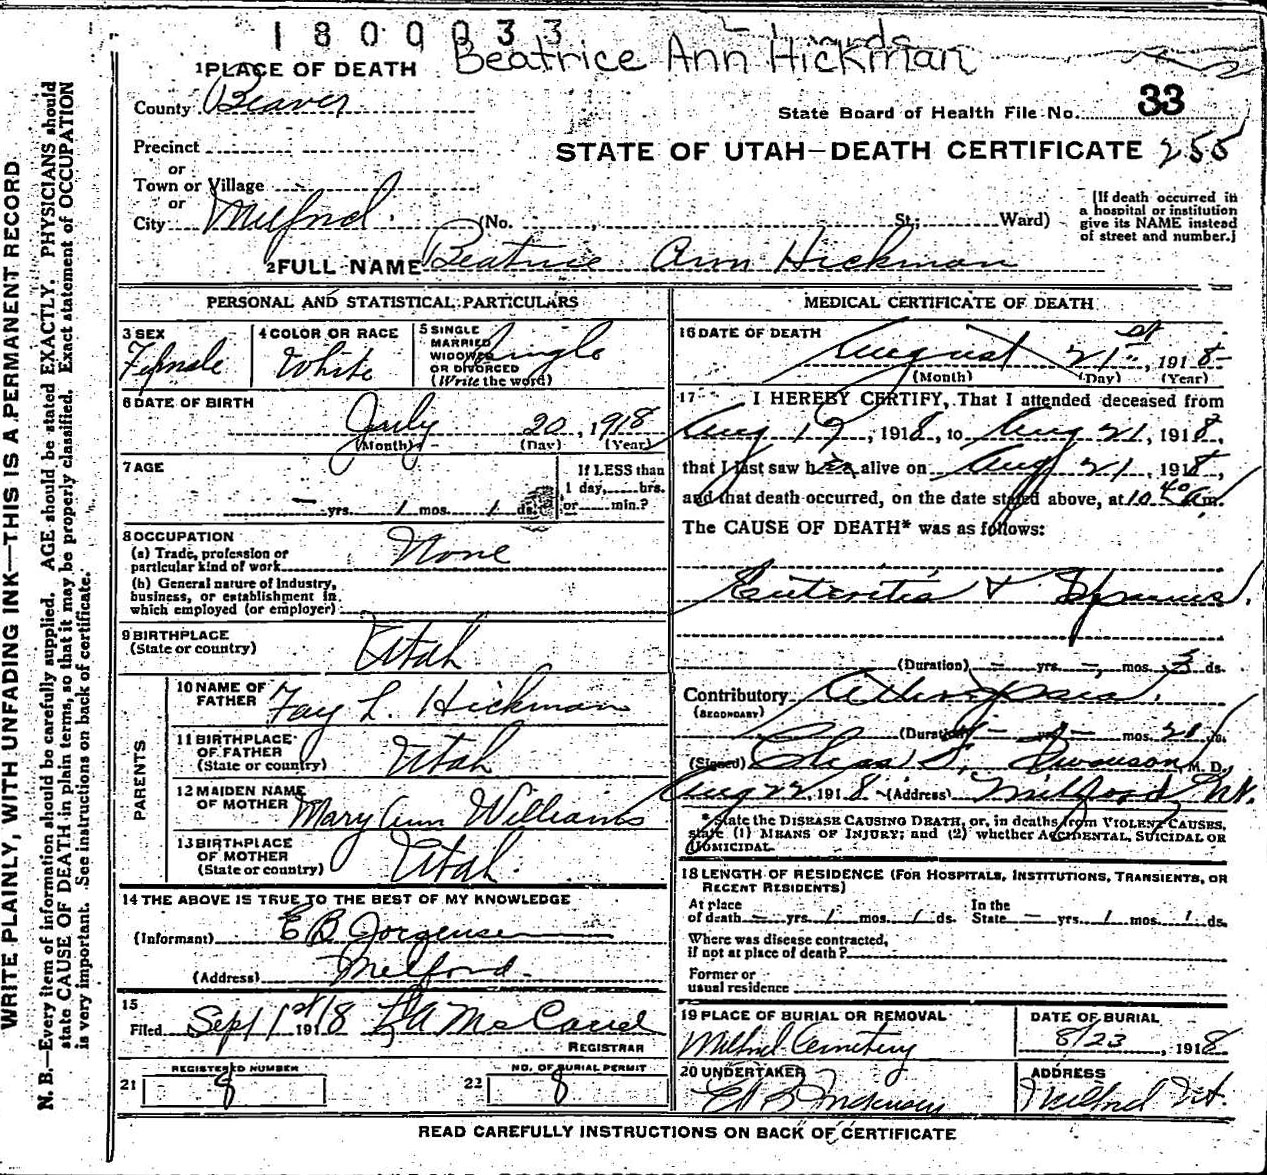 1800033
Beatrice Ann Hickman
1 PLACE OF DEATH
County Beaver
State Board of Health File No. 33
Precinct
STATE OF UTAH—DEATH CERTIFICATE 255
or
Town or Village
or
City Milford (No. St; Ward)
(If death occurred in
a hospital or institution
give its NAME instead
of street and number.)
2 FULL NAME Beatrice Ann Hickman
PERSONAL AND STATISTICAL PARTICULARS
3 SEX
Female
4 COLOR OR RACE
White
5 SINGLE
MARRIED
WIDOWED
OR DIVORCED
(Write the word)
Single
6 DATE OF BIRTH
July 20, 1918
(Month) (Day) (Year)
7 AGE
— yrs. 1 mos. 1 ds.
If LESS than
1 day, hrs.
or min.?
8 OCCUPATION
(a) Trade, profession or
particular kind of work None
(b) General nature of Industry,
business, or establishment in
which employed (or employer)
9 BIRTHPLACE
(State or country) Utah
PARENTS
10 NAME OF
FATHER Fay L. Hickman
11 BIRTHPLACE
OF FATHER
(State or country) Utah
12 MAIDEN NAME
OF MOTHER Mary Ann Williams
13 BIRTHPLACE
OF MOTHER
(State or country) Utah
14 THE ABOVE IS TRUE TO THE BEST OF MY KNOWLEDGE
(Informant) E B Jorgensen
(Address) Milford
15
Filed Sept 1st 1918 L A McCarrel
REGISTRAR
21 REGISTERED NUMBER 8
22 NO. OF BURIAL PERMIT 8
MEDICAL CERTIFICATE OF DEATH
16 DATE OF DEATH
August 21st, 1918
(Month) (Day) (Year)
17 I HEREBY CERTIFY, That I attended deceased from
Aug 19, 1918, to Aug 21, 1918,
that I last saw her alive on Aug 21, 1918,
and that death occurred, on the date stated above, at 10 40 a m.
The CAUSE OF DEATH* was as follows:
Enteritis +
(Duration) — yrs. — mos. 3 ds.
Contributory
(SECONDARY)
(Duration) — yrs. — mos. ds.
(Signed) Chas F. Swanson, M. D.
Aug 22, 1918 (Address) Milford Ut.
* State the DISEASE CAUSING DEATH, or, in deaths from VIOLENT CAUSES,
state (1) MEANS OF INJURY; and (2) whether ACCIDENTAL, SUICIDAL OR
HOMICIDAL.
18 LENGTH OF RESIDENCE (FOR HOSPITALS, INSTITUTIONS, TRANSIENTS, OR
RECENT RESIDENTS)
At place
of death — yrs. 1 mos. 1 ds.
In the
State — yrs. 1 mos. 1 ds.
Where was disease contracted,
if not at place of death?
Former or
usual residence
19 PLACE OF BURIAL OR REMOVAL
Milford Cemetery
DATE OF BURIAL
8/23, 1918
20 UNDERTAKER
ADDRESS
Milford Ut.
READ CAREFULLY INSTRUCTIONS ON BACK OF CERTIFICATE
WRITE PLAINLY, WITH UNFADING INK—THIS IS A PERMANENT RECORD
N. B.—Every item of information should be carefully supplied. AGE should be stated EXACTLY. PHYSICIANS should
state CAUSE OF DEATH in plain terms, so that it may be properly classified. Exact statement of OCCUPATION
is very important. See instructions on back of certificate.